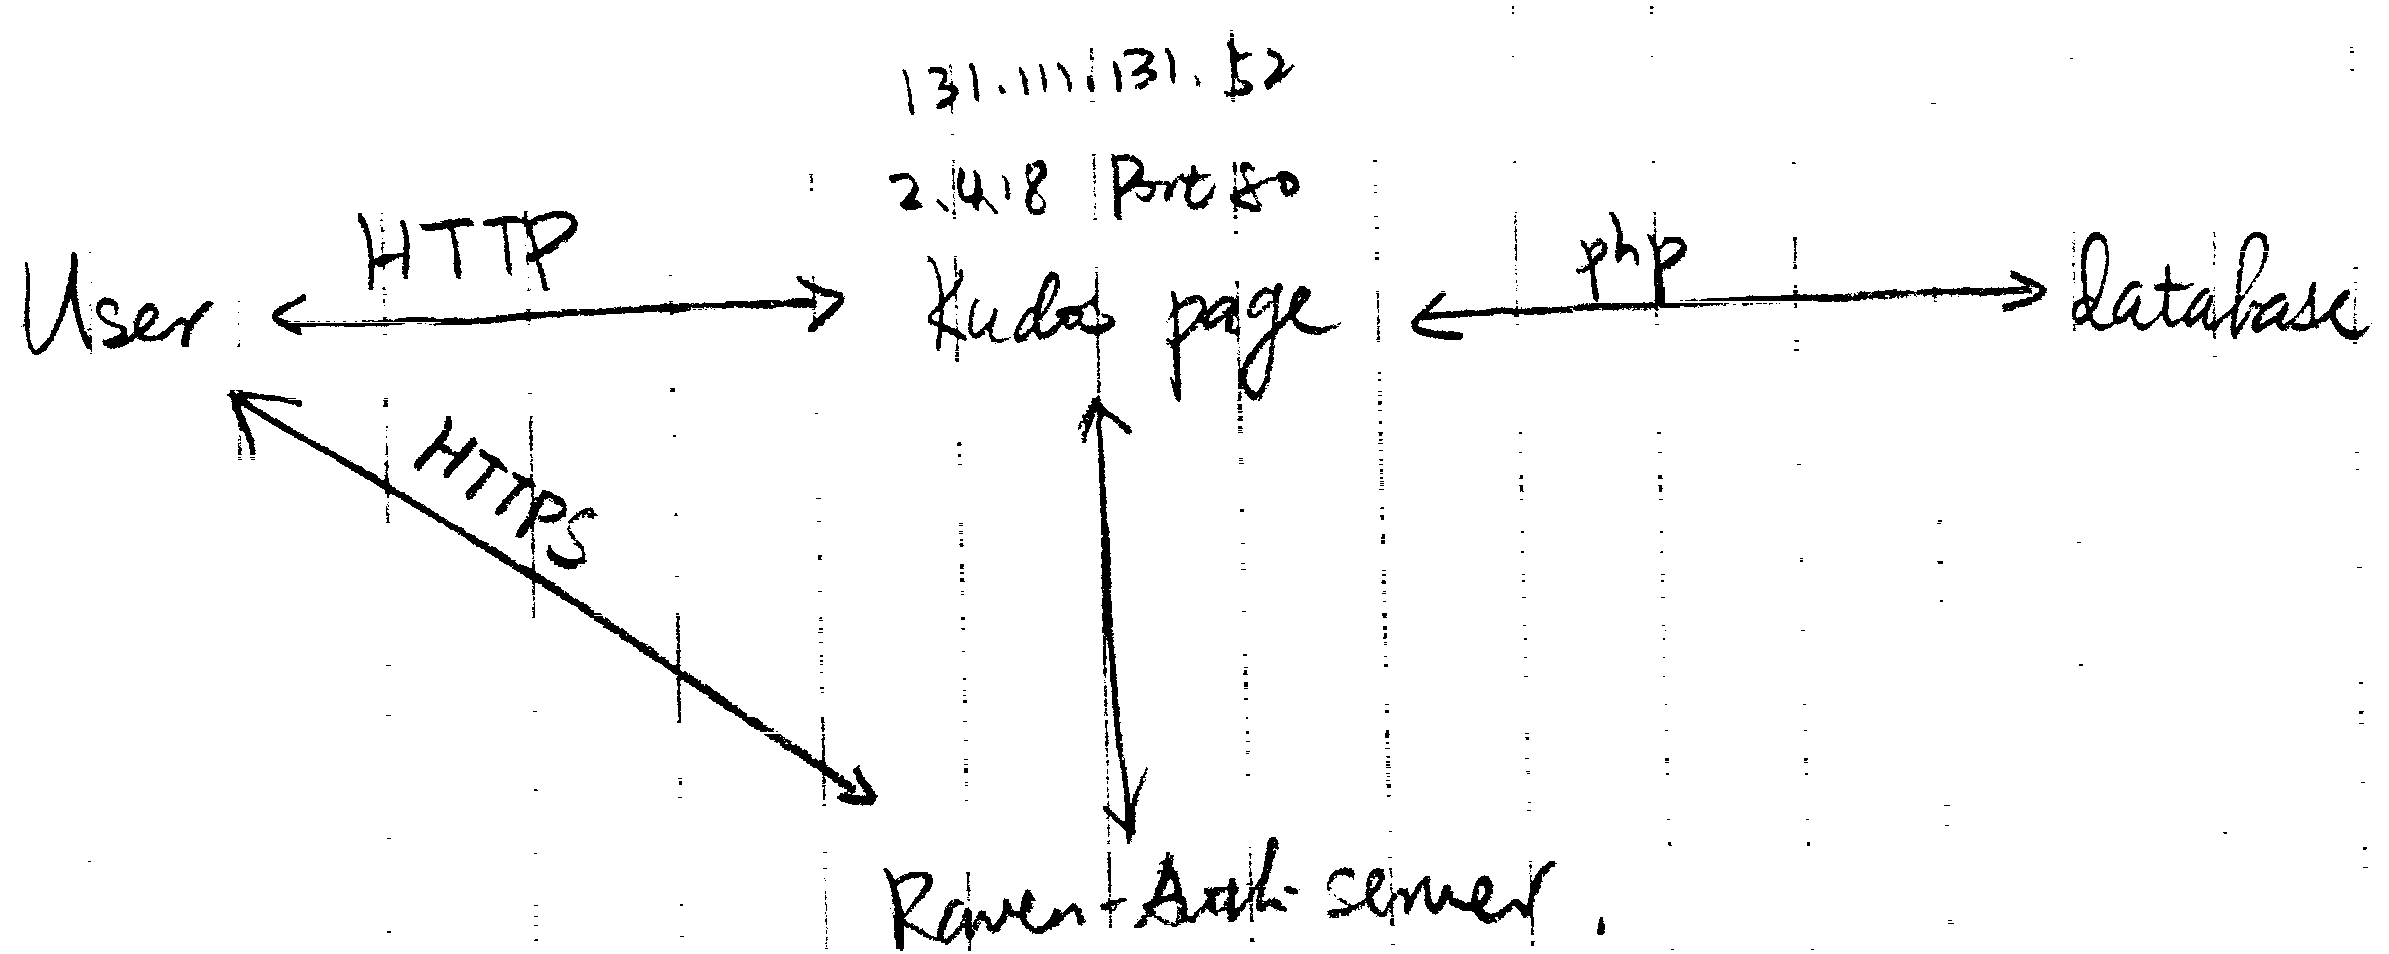 131.111.131.52
2.4.18 Port 80
HTTP
php
User
Kudos page
database
HTTPS
Raven-Auth-server.